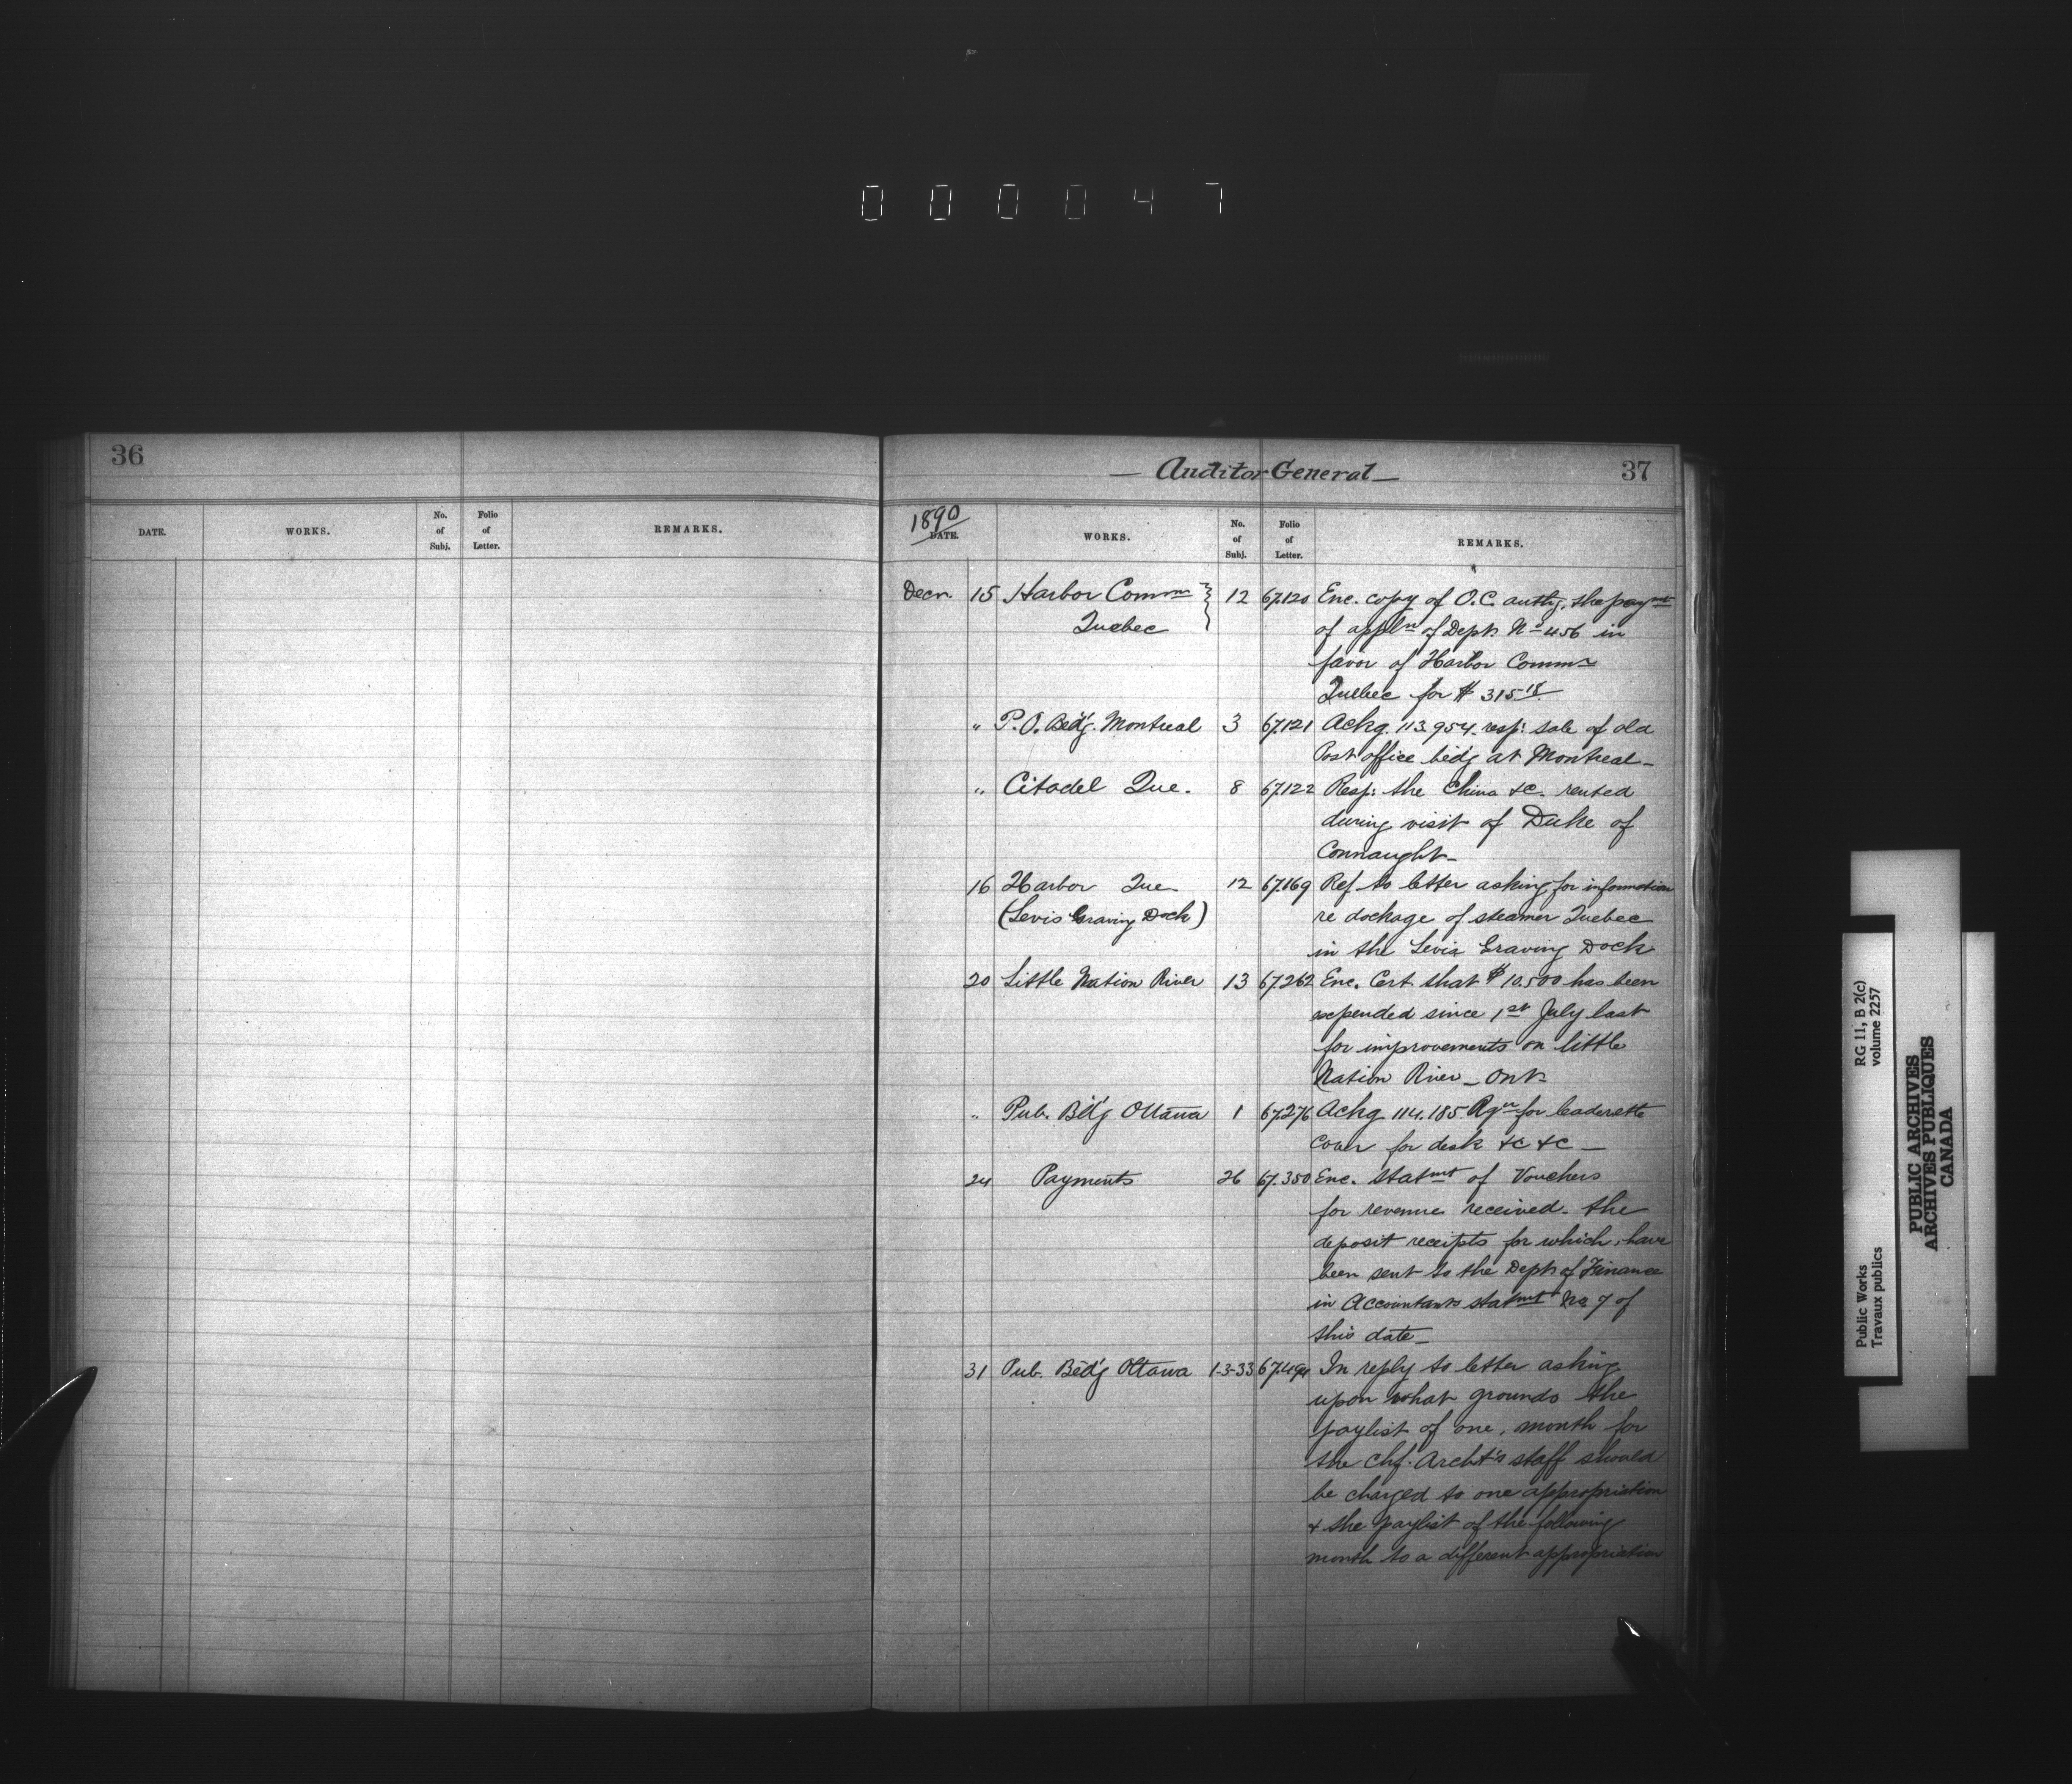 0 0 0 0 4 7
36
DATE. WORKS. No. of Subj. Folio of Letter. REMARKS.
— Auditor General — 37
1890
DATE. WORKS. No. of Subj. Folio of Letter. REMARKS.
Decr. 15 Harbor Commn 12 67.120 Enc. copy of O.C. authg. the paymt
Quebec of appln of Dept. No 456 in
favor of Harbor Commn
Quebec for $ 315.18
" P.O. Bldg. Montreal 3 67.121 Ackg. 113.954. resp: sale of old
Post office bldg at Montreal_
" Citadel Que. 8 67.122 Resp: the China &c. rented
during visit of Duke of
Connaught_
16 Harbor Que 12 67.169 Ref to letter asking for information
(Levis Graving Dock) re dockage of steamer Quebec
in the Levis Graving Dock
20 Little Nation River 13 67.262 Enc. Cert. that $10.500 has been
expended since 1st July last
for improvements on little
Nation River _ Ont.
" Pub. Bldg Ottawa 1 67.276 Ackg 114.185 Rqn for leaderette
cover for desk &c &c _
24 Payments 26 67.350 Enc. statmt of Vouchers
for revenue received. the
deposit receipts for which, have
been sent to the Dept. of Finance
in Accountants statmt No. 7 of
this date_
31 Pub. Bldg Ottawa 1-3-33 67.494 In reply to letter asking
upon what grounds the
paylist of one, month for
the Chf. Archt's staff should
be charged to one appropriation
& the paylist of the following
month to a different appropriation
Public Works RG 11, B 2(c)
Travaux publics volume 2257
PUBLIC ARCHIVES
ARCHIVES PUBLIQUES
CANADA